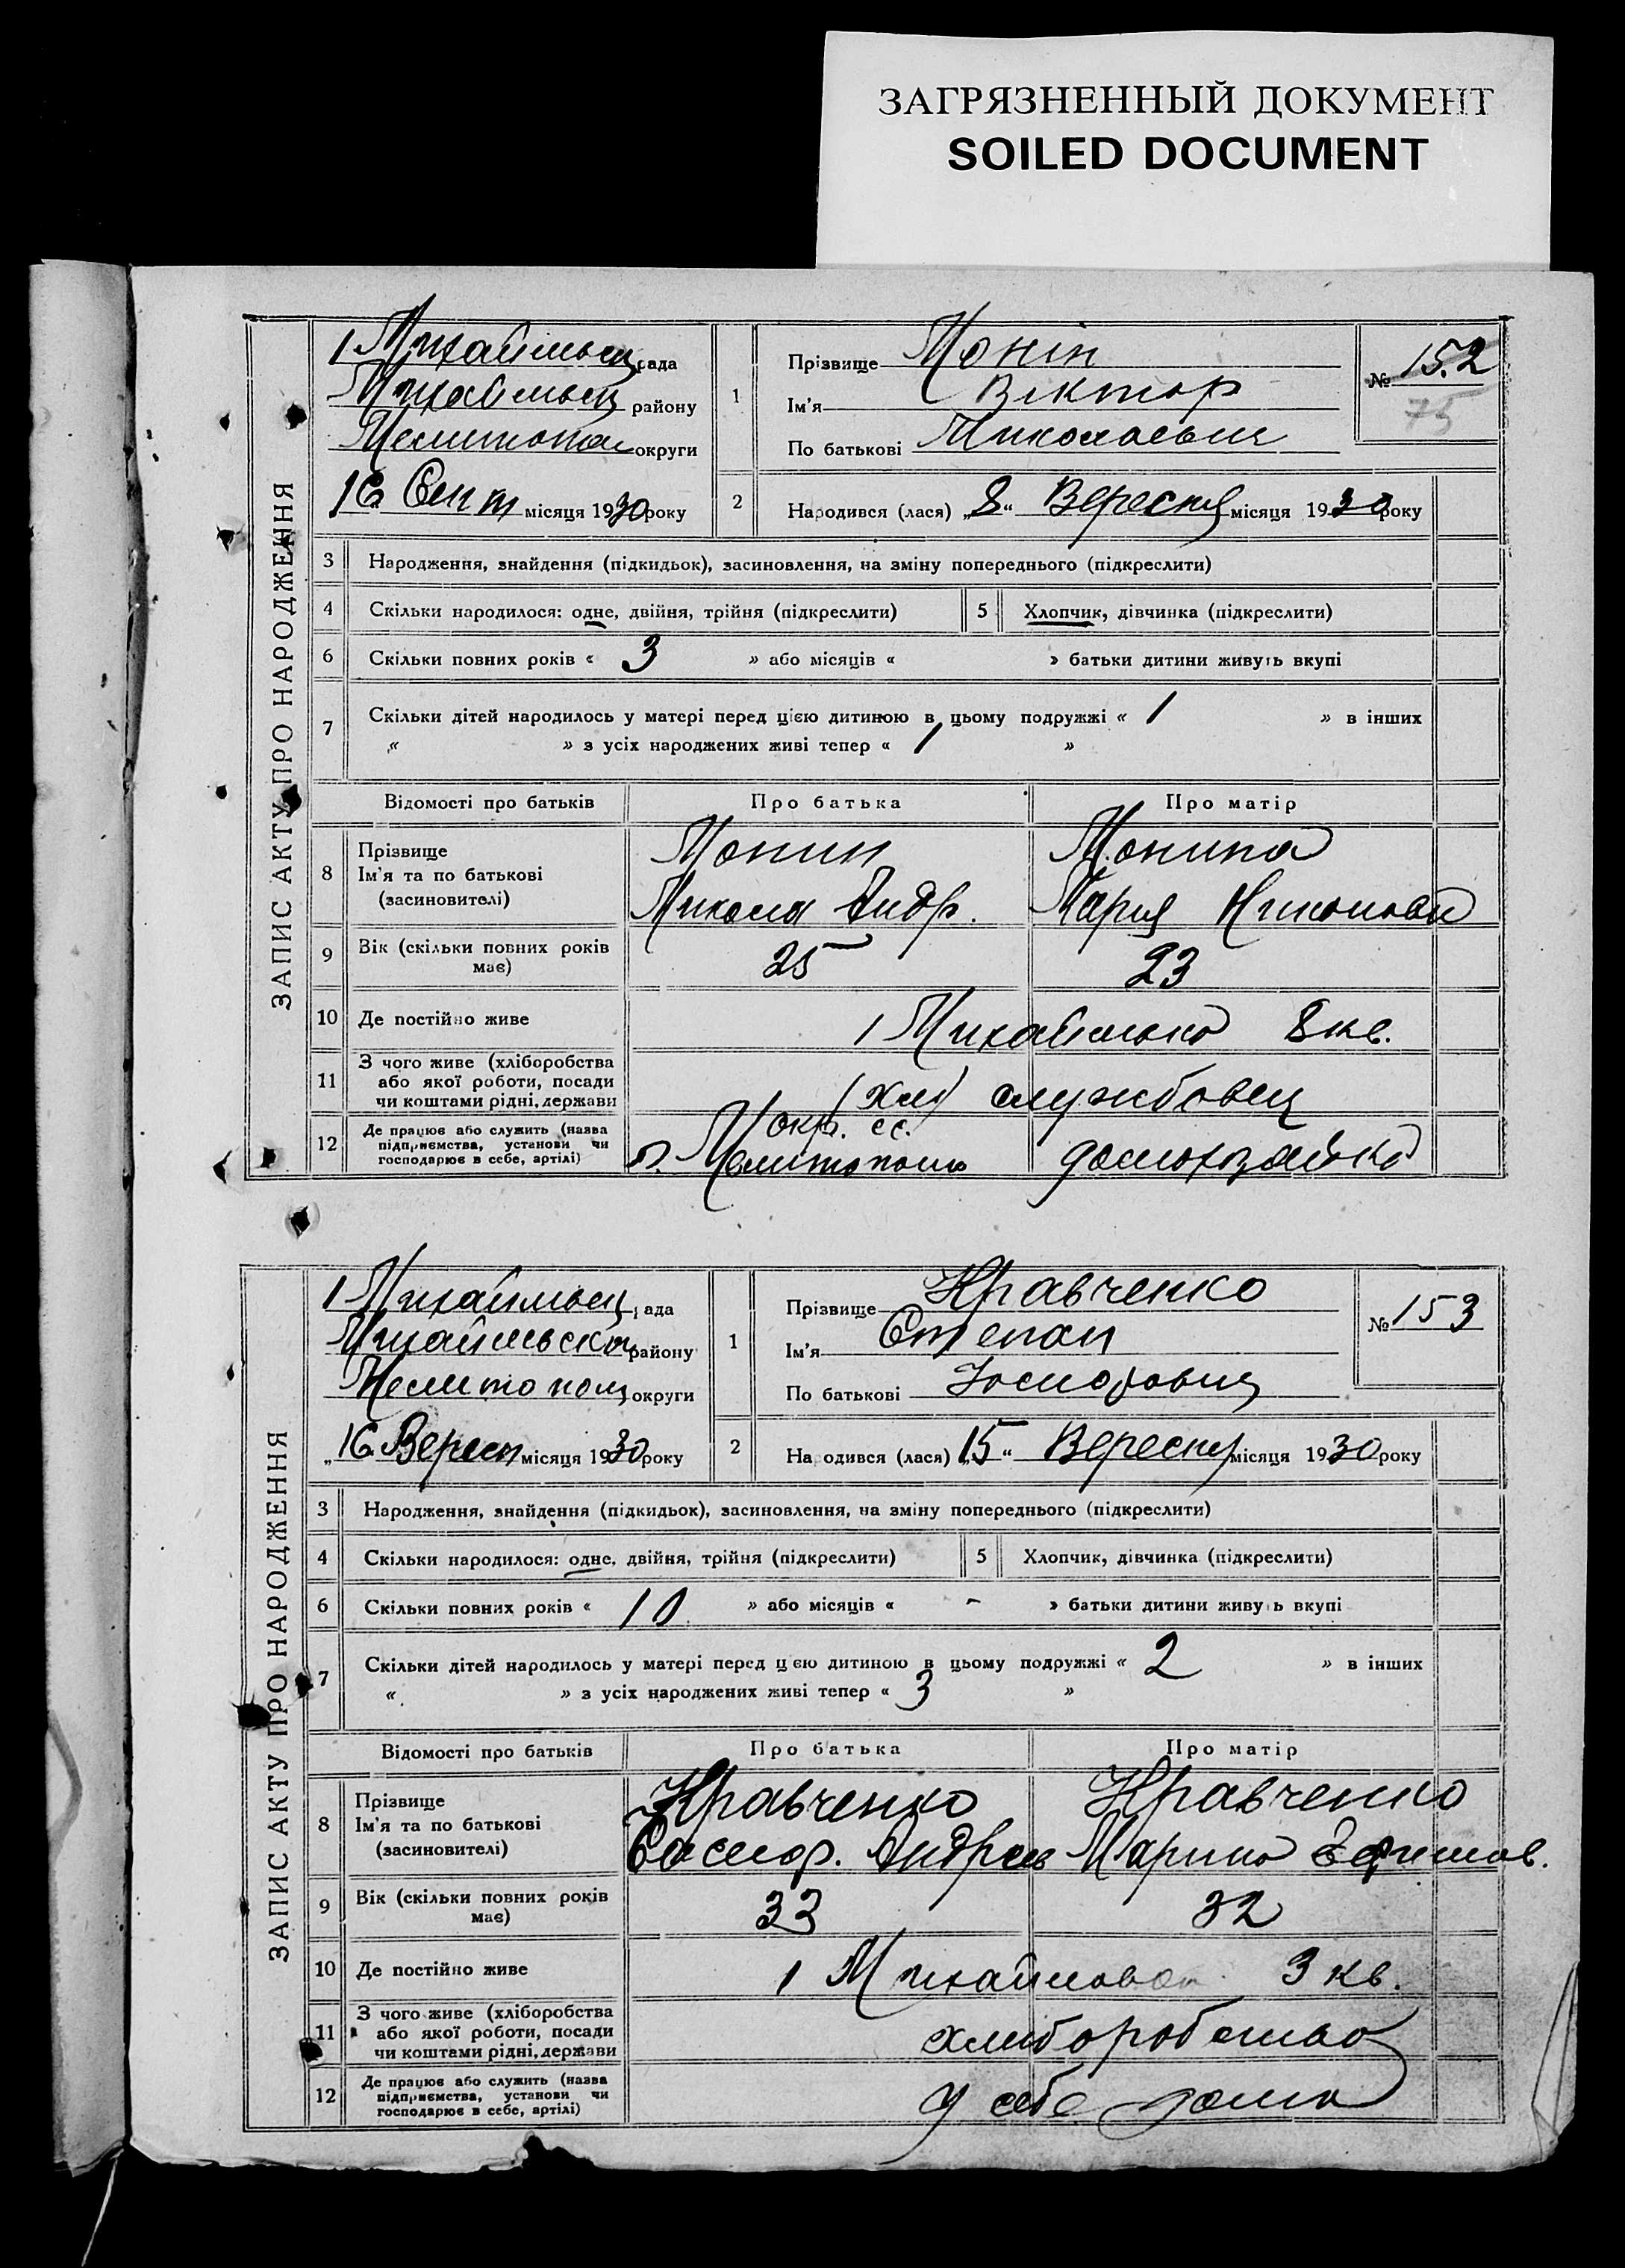 ЗАГРЯЗНЕННЫЙ ДОКУМЕНТ
SOILED DOCUMENT
ЗАПИС АКТУ ПРО НАРОДЖЕННЯ
1 Михайлівськ рада
району
Мелитопол округи
16 Сент місяця 1930 року
1
Прізвище Монін
Ім'я Віктор
По батькові Миколаевич
№ 152
75
2
Народився (лася) „8“ Вересня місяця 1930 року
3 Народження, знайдення (підкидьок), засиновлення, на зміну попереднього (підкреслити)
4 Скільки народилося: одне, двійня, трійня (підкреслити)
5 Хлопчик, дівчинка (підкреслити)
6 Скільки повних років « 3 » або місяців « » батьки дитини живуть вкупі
7 Скільки дітей народилось у матері перед цією дитиною в цьому подружжі « 1 » в інших
« » з усіх народжених живі тепер « 1 »
Відомості про батьків Про батька Про матір
8 Прізвище
Ім'я та по батькові
(засиновителі)
Монин
Микола Андр.
Монина
Мария
9 Вік (скільки повних років
має)
25
23
10 Де постійно живе
1 Михайлівка 8 кв.
11 З чого живе (хліборобства
або якої роботи, посади
чи коштами рідні, держави
службовец
12 Де працює або служить (назва
підприємства, установи чи
господарює в себе, артілі)
Мелитополь
домохазяйка
ЗАПИС АКТУ ПРО НАРОДЖЕННЯ
1 рада
району
Мелитопол округи
„16 Вересн місяця 1930 року
1
Прізвище Кравченко
Ім'я Степан
По батькові
№ 153
2
Народився (лася) „15“ Вересня місяця 1930 року
3 Народження, знайдення (підкидьок), засиновлення, на зміну попереднього (підкреслити)
4 Скільки народилося: одне, двійня, трійня (підкреслити)
5 Хлопчик, дівчинка (підкреслити)
6 Скільки повних років « 10 » або місяців « - » батьки дитини живуть вкупі
7 Скільки дітей народилось у матері перед цією дитиною в цьому подружжі « 2 » в інших
« » з усіх народжених живі тепер « 3 »
Відомості про батьків Про батька Про матір
8 Прізвище
Ім'я та по батькові
(засиновителі)
Кравченко
Андреев
Кравченко
Марина
9 Вік (скільки повних років
має)
33
32
10 Де постійно живе
1 3 кв.
11 З чого живе (хліборобства
або якої роботи, посади
чи коштами рідні, держави
хлиборобство
12 Де працює або служить (назва
підприємства, установи чи
господарює в себе, артілі)
У себе дома